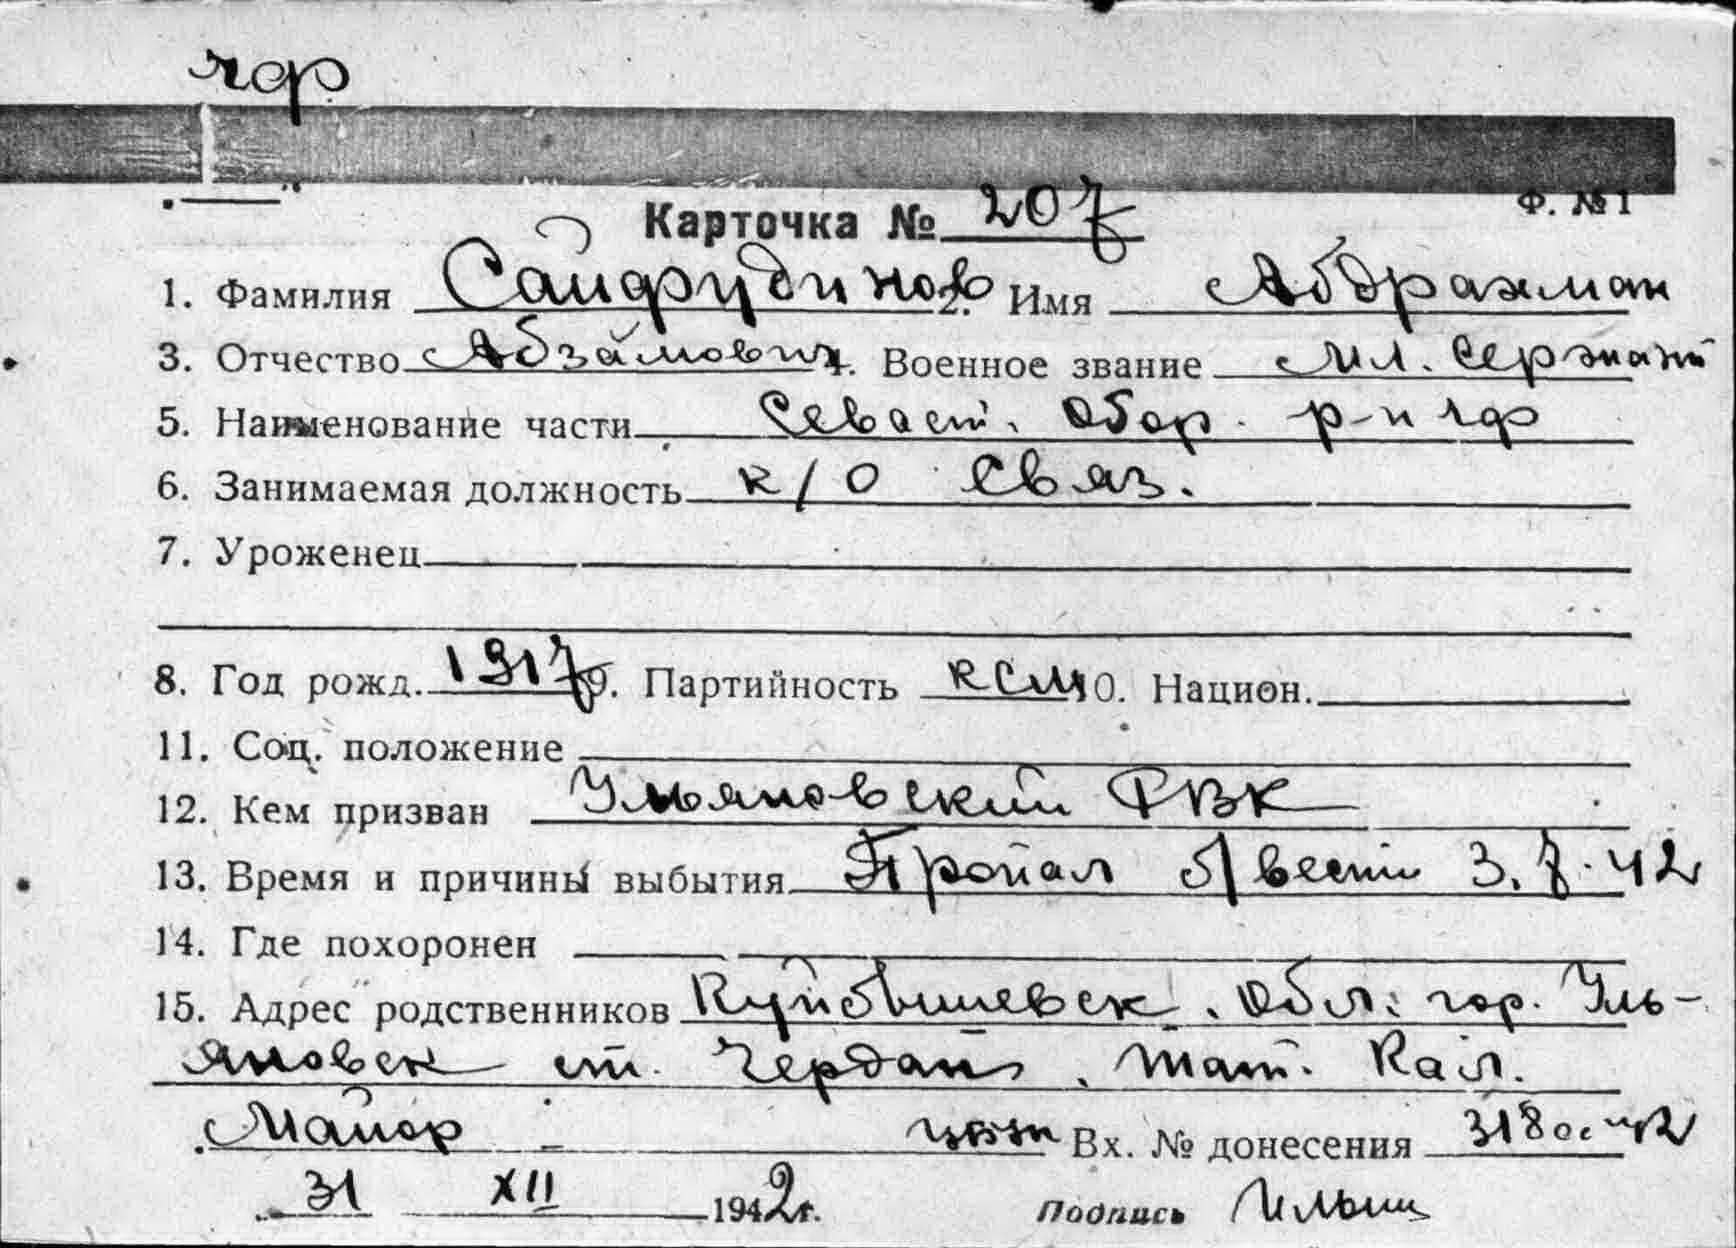 чф
Ф. №1
Карточка № 207
1. Фамилия Сайфудинов 2. Имя Абдрахман
3. Отчество Абзамович 4. Военное звание мл. сержант
5. Наименование части Севаст. Обор. р-н чф
6. Занимаемая должность к/о связ.
7. Уроженец
8. Год рожд. 1917 9. Партийность КСМ 10. Национ.
11. Соц. положение
12. Кем призван Ульяновский РВК
13. Время и причины выбытия Пропал б/вести 3.7.42
14. Где похоронен
15. Адрес родственников Куйбышевск. Обл. гор. Уль-
яновск ст. Чердань, тат. Кал.
Майор Вх. № донесения 318
31 XII 1942 г. Подпись Ильин